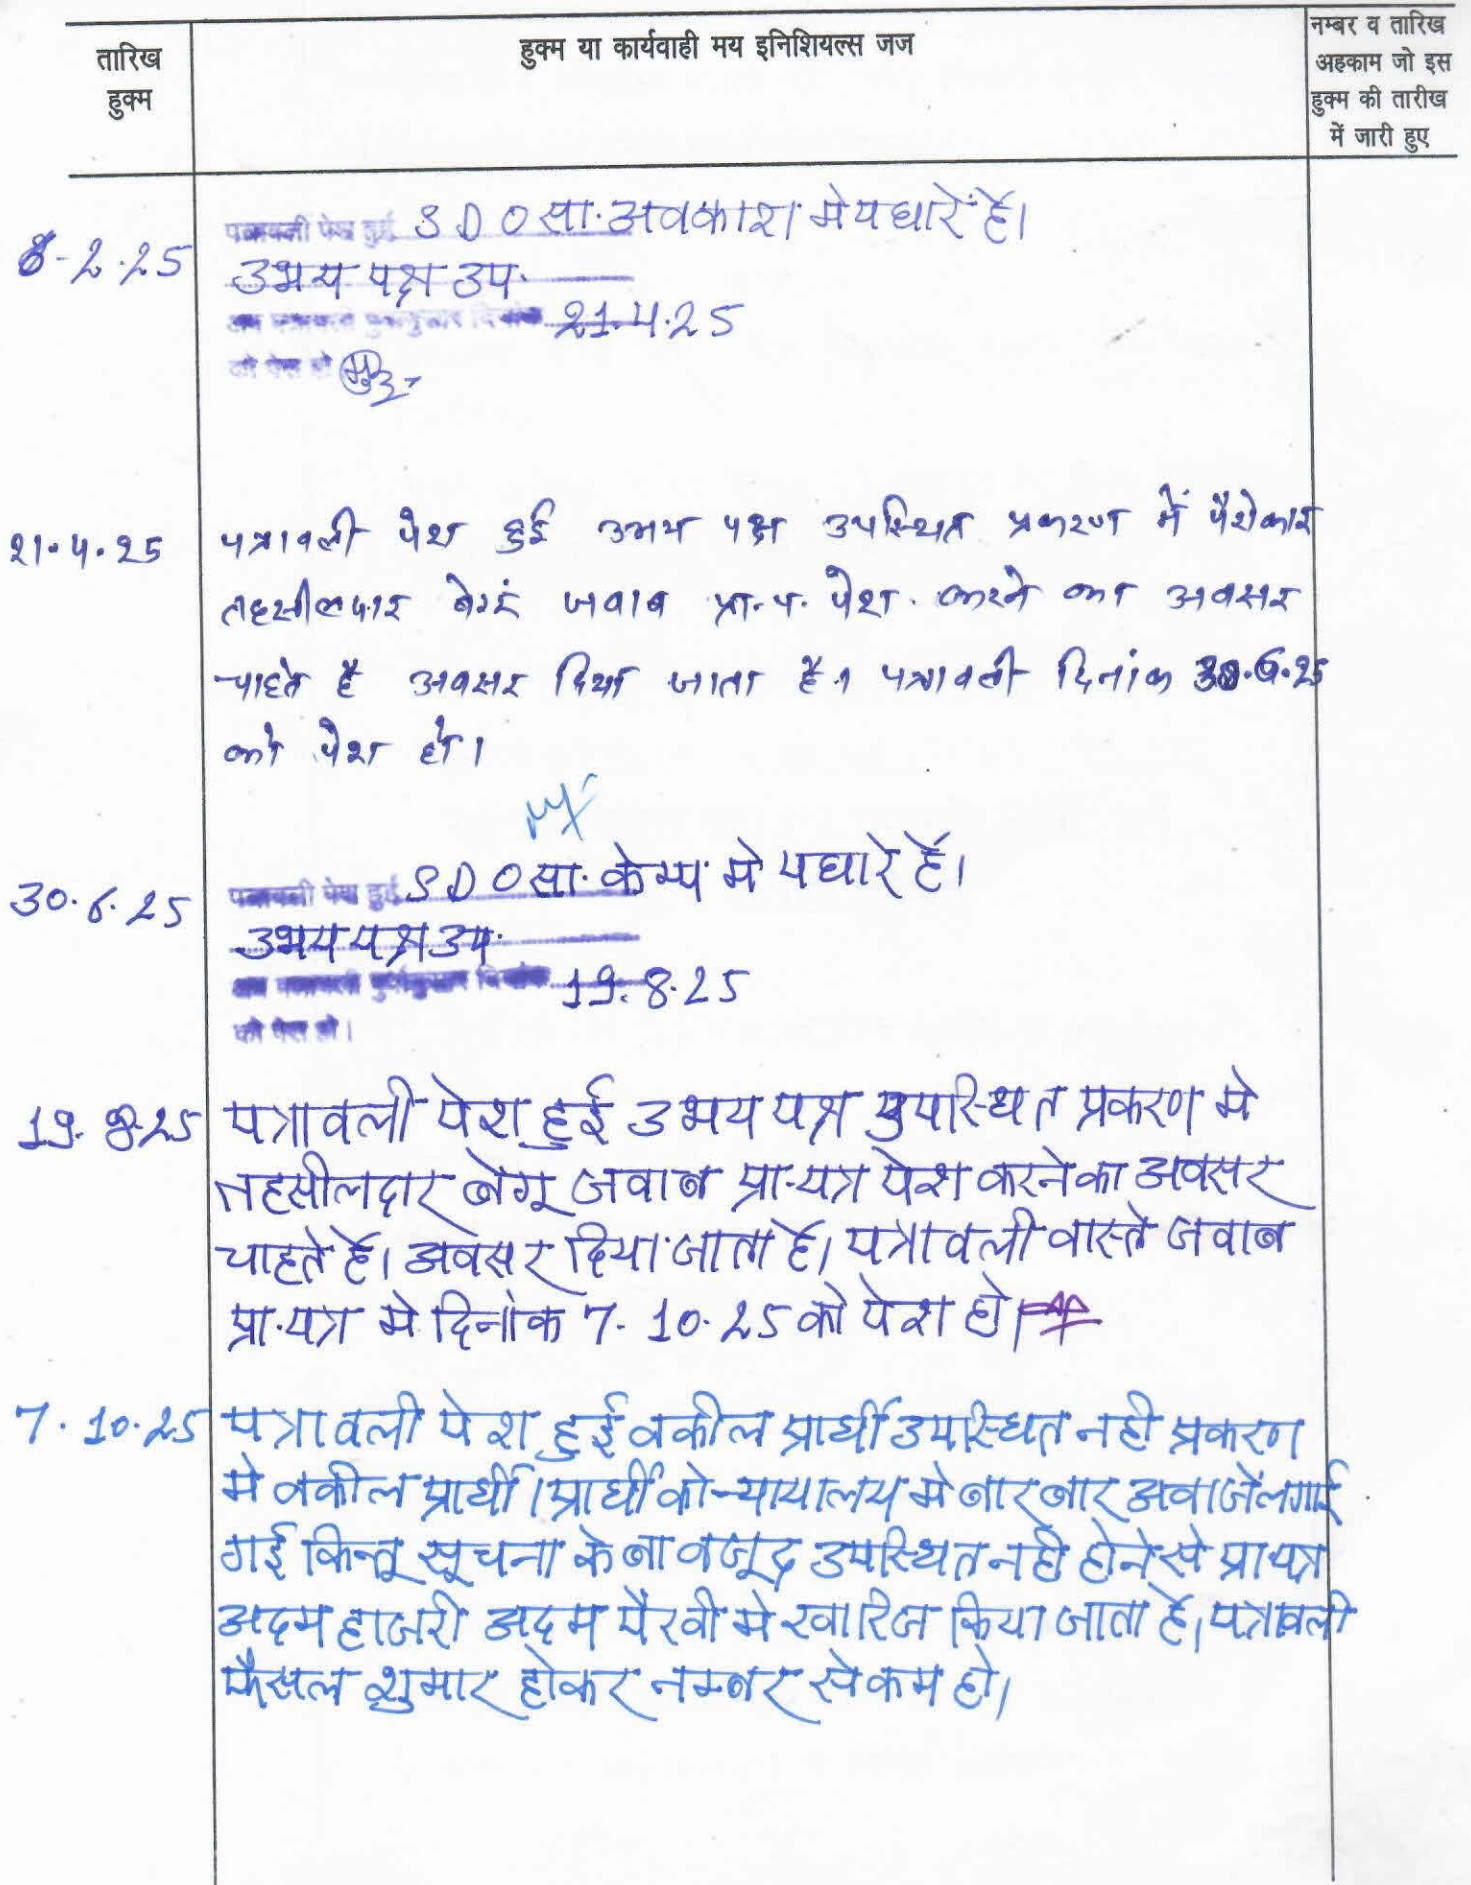 तारिख
हुक्म
हुक्म या कार्यवाही मय इनिशियल्स जज
नम्बर व तारिख
अहकाम जो इस
हुक्म की तारीख
में जारी हुए
8-2-25
पत्रावली पेश हुई SDO सा. अवकाश मे पधारें है।
उभय पक्ष उप.
अब पत्रावली पुर्वानुसार दिनांक 21.4.25
को पेश हो
21.4.25
पत्रावली पेश हुई उभय पक्ष उपस्थित प्रकरण में पैरोकार
तहसीलदार बेगूं जवाब प्रा.प. पेश करने का अवसर
चाहते है अवसर दिया जाता है। पत्रावली दिनांक 30.6.25
को पेश हो।
30.6.25
पत्रावली पेश हुई SDO सा. केम्प मे पधारे है।
उभय पक्ष उप.
अब पत्रावली पुर्वानुसार दिनांक 19.8.25
को पेश हो।
19.8.25
पत्रावली पेश हुई उभय पक्ष उपस्थित प्रकरण मे
तहसीलदार बेगू जवाब प्रा.पत्र पेश करने का अवसर
चाहते है। अवसर दिया जाता है। पत्रावली वास्ते जवाब
प्रा.पत्र मे दिनांक 7.10.25 को पेश हो।
7.10.25
पत्रावली पेश हुई वकील प्रार्थी उपस्थित नही प्रकरण
मे वकील प्रार्थी/प्रार्थी को न्यायालय मे बार बार अवाजें लगाई
गई किन्तू सूचना के बावजूद उपस्थित नही होने से प्रा.पत्र
अदम हाजरी अदम पैरवी मे खारिज किया जाता है। पत्रावली
फैसल शुमार होकर नम्बर से कम हो।